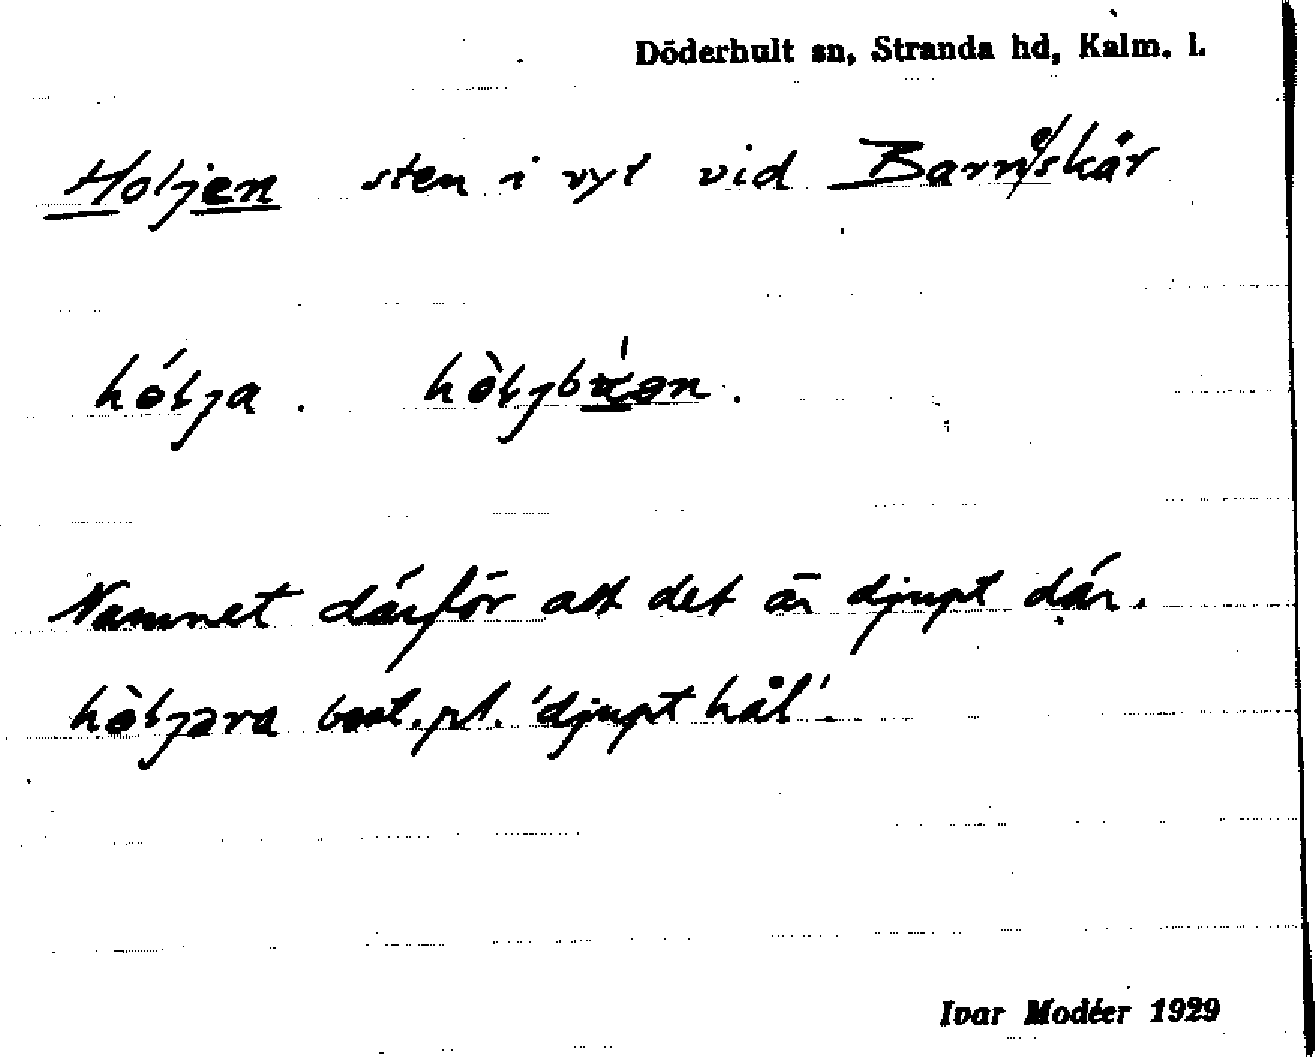 Döderhult sn, Stranda hd, Kalm. l.
Holjen sten i vyt vid Barnskär
hólja. hòljbɷ́ən.
Namnet därför att det är djupt där.
hòljara best. pl. 'djupt hål'.
Ivar Modéer 1929